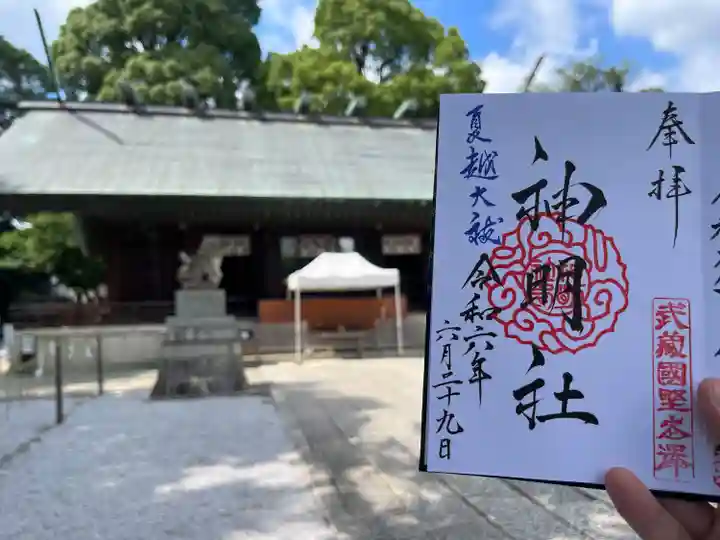 奉拝
武蔵國野老澤
神明社
夏越大祓
令和六年
六月二十九日